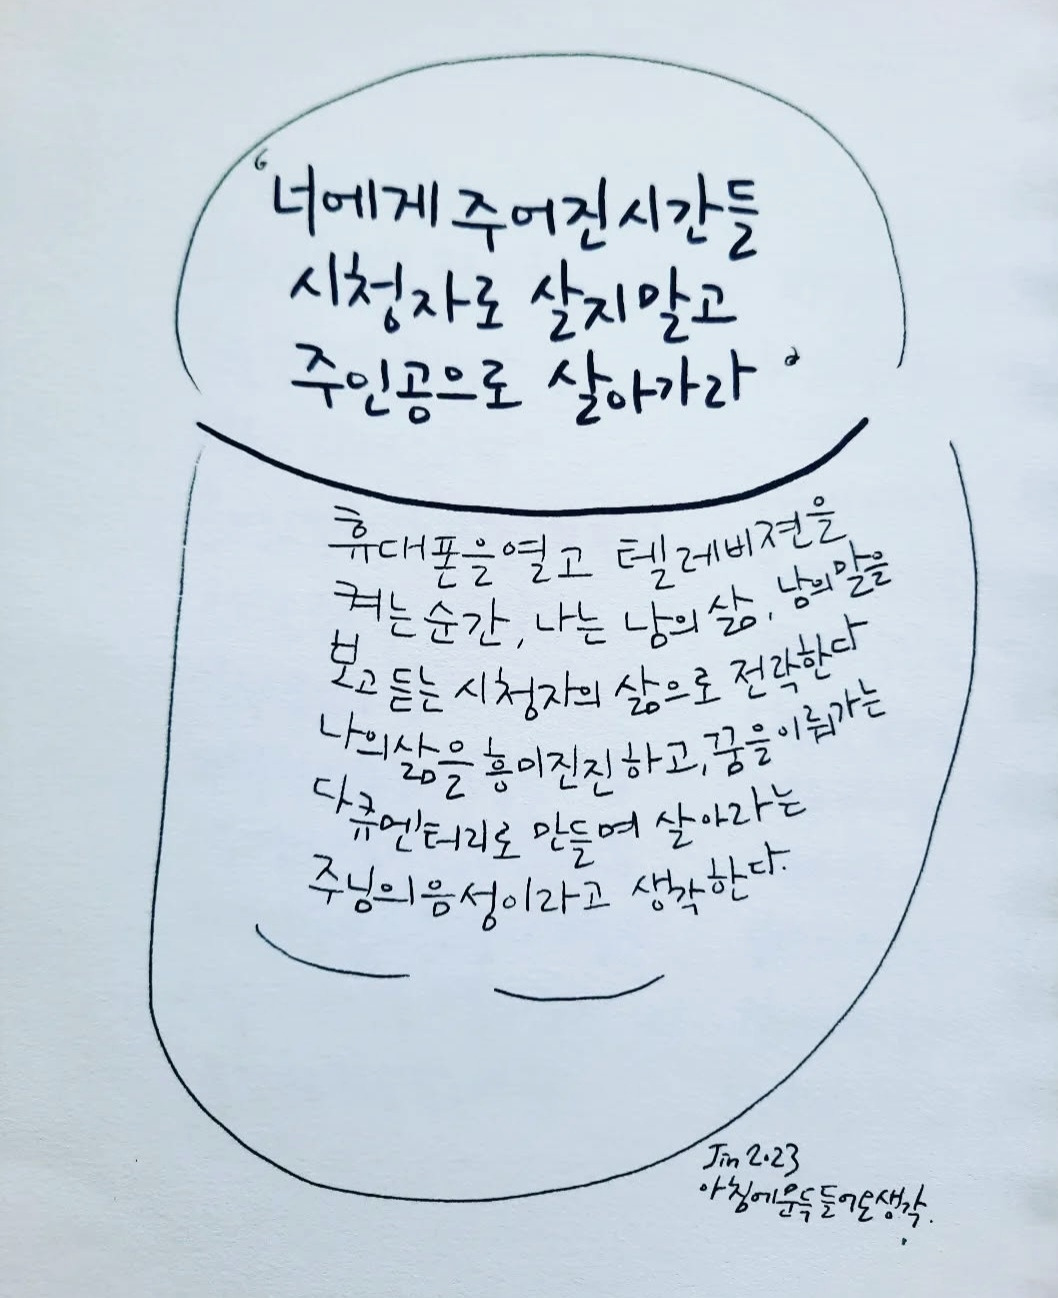 "너에게 주어진 시간들
시청자로 살지말고
주인공으로 살아가라"
휴대폰을 열고 텔레비젼을
켜는 순간, 나는 남의 삶, 남의 말을
보고 듣는 시청자의 삶으로 전락한다
나의 삶을 흥미진진하고, 꿈을 이뤄가는
다큐멘터리로 만들며 살아라는
주님의 음성이라고 생각한다.
Jin 2.23
아침에 문득 들어온 생각.